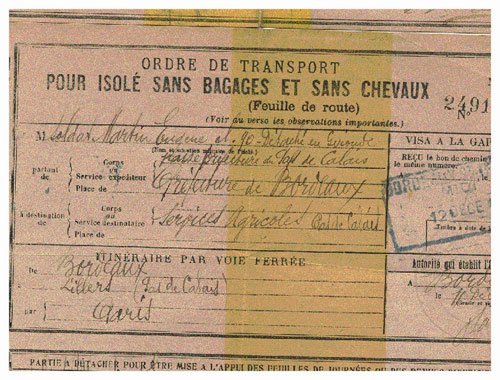 ORDRE DE TRANSPORT
POUR ISOLÉ SANS BAGAGES ET SANS CHEVAUX
(Feuille de route)
2491
(Voir au verso les observations importantes.)
N°
M. Soldat Martin Eugène et 90 Détaché en Gironde
Préfecture du Pas de Calais
VISA A LA GAR
REÇU le bon de chemin
partant de
Corps
Service expéditeur
Place de
Préfecture de Bordeaux
BORDE
12 DÉC
à destination de
Corps
Service destinataire
Place de
Services Agricoles Pas de Calais
Timbre à date de
ITINÉRAIRE PAR VOIE FERRÉE
Autorité qui établit l'
De Bordeaux
à Lillers (Pas de Calais)
par Paris
Bord
PARTIE A DÉTACHER POUR ÊTRE MISE A L'APPUI DES FEUILLES DE JOURNÉES OU DES